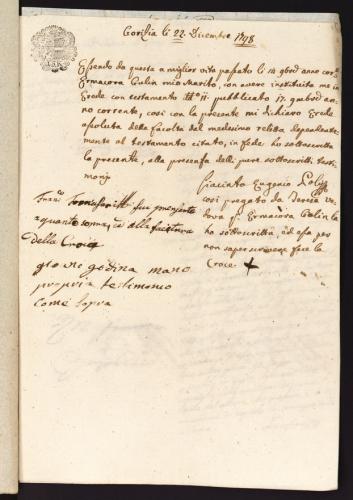 Gorizia li 22. Dicembre 1798
Essendo da questa a miglior vita passato li 14 9bre anno cor.
Ermacora Culin mio Marito, con avere instituita me in
Erede con testamento pubblicato 17. an
no corrente, così con la presente mi dichiaro Erede
assoluta della facoltà del medesimo relitta dependente
mente al testamento citato, in fede ho sottoscritta
la presente, alla presenza delli pure sottoscritti testi
monj
Giacinto Eugenio
così pregato da
Ermacora Culin la
ho sottoscritta, ed essa per
non saper scrivere fece la
Croce +
fui presente
a quanto sopra, ed alla facitura
Della Croce
godina mano
propria testimonio
come sopra